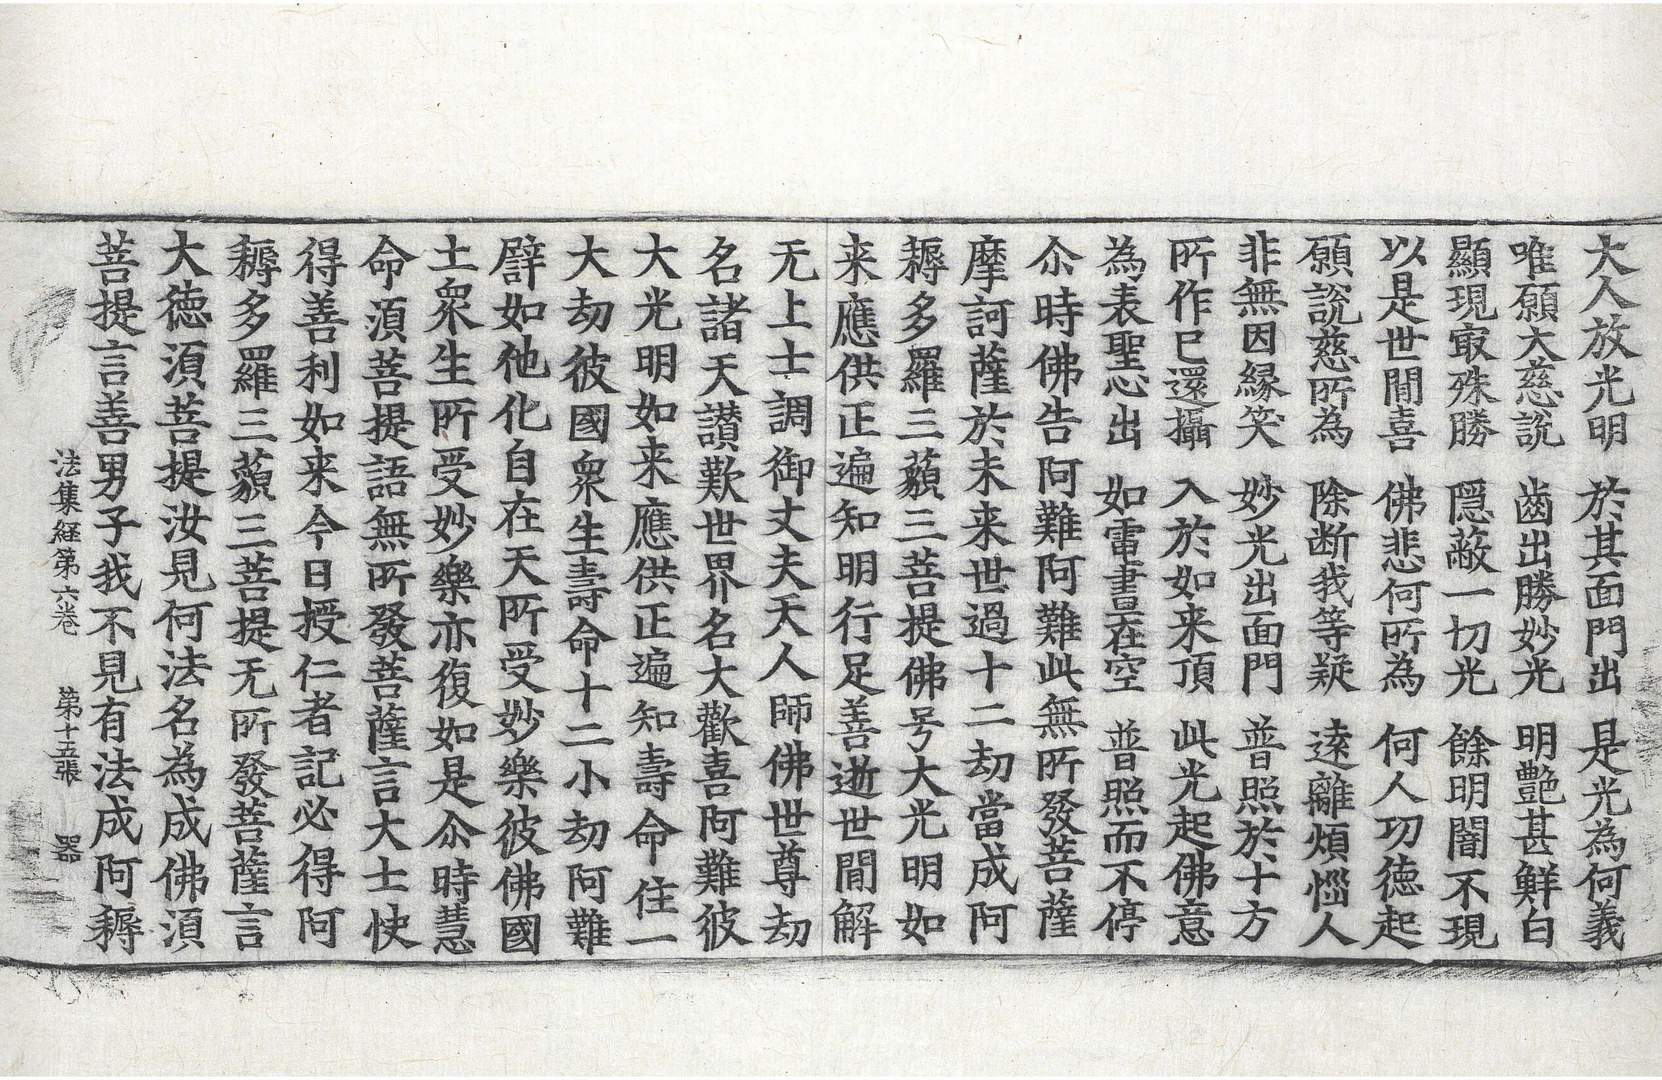 大人放光明　於其面門出　是光為何義
唯願大慈說　齒出勝妙光　明艶甚鮮白
顯現㝡殊勝　隱蔽一切光　餘明闇不現
以是世間喜　佛悲何所為　何人功德起
願說慈所為　除断我等疑　遠離煩惱人
非無因縁笑　妙光出面門　普照於十方
所作已還攝　入於如来頂　此光起佛意
為表聖心出　如電晝在空　普照而不停
尒時佛告阿難阿難此無所發菩薩
摩訶薩於未来世過十二劫當成阿
耨多羅三藐三菩提佛号大光明如
来應供正遍知明行足善逝世間解
无上士調御丈夫天人師佛世尊劫
名諸天讃歎世界名大歡喜阿難彼
大光明如来應供正遍知壽命住一
大劫彼國衆生壽命十二小劫阿難
譬如他化自在天所受妙樂彼佛國
土衆生所受妙樂亦復如是尒時慧
命湏菩提語無所發菩薩言大士快
得善利如来今日授仁者記必得阿
耨多羅三藐三菩提无所發菩薩言
大德湏菩提汝見何法名為成佛湏
菩提言善男子我不見有法成阿耨
法集経第六卷　第十五張　器